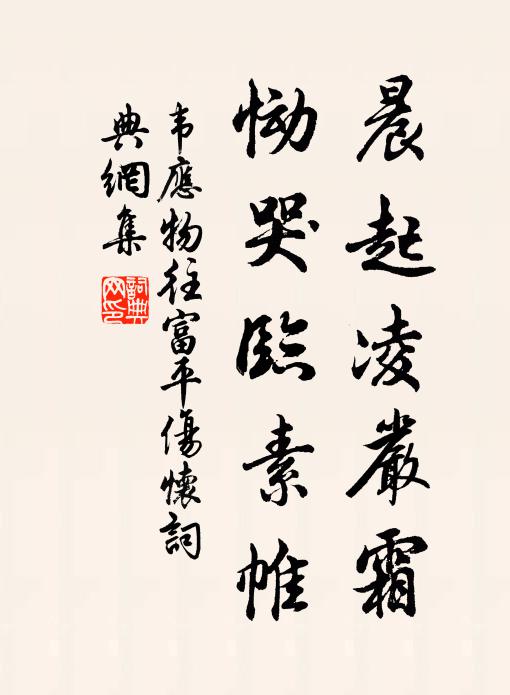 晨起凌嚴霜
慟哭臨素帷
韦應物往富平傷懷詞
典網集
詞典
网印